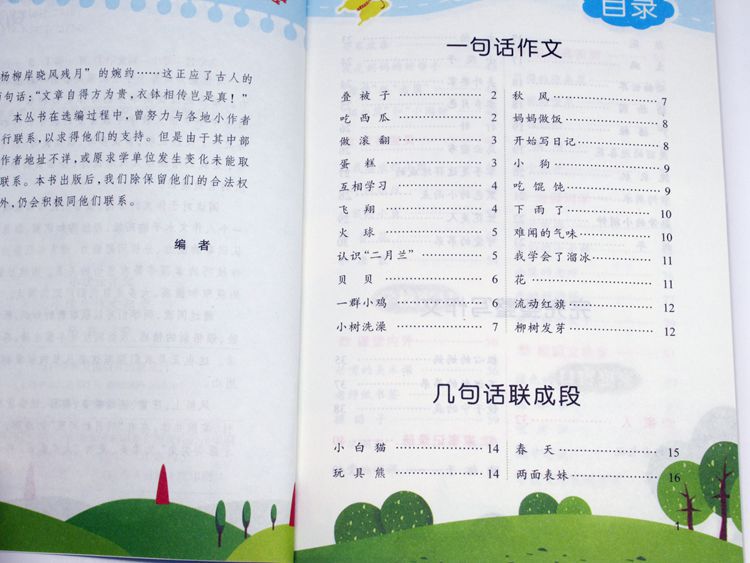 杨柳岸晓风残月”的婉约……这正应了古人的
句话：“文章自得方为贵，衣钵相传岂是真！”
本丛书在选编过程中，曾努力与各地小作者
行联系，以求得他们的支持。但是由于其中部
作者地址不详，或原求学单位发生变化未能取
联系。本书出版后，我们除保留他们的合法权
外，仍会积极同他们联系。
编 者
目录
一句话作文
叠被子……2
吃西瓜……2
做滚翻……3
蛋糕……3
互相学习……4
飞翔……4
火球……5
认识“二月兰”……5
贝贝……6
一群小鸡……6
小树洗澡……7
秋风……7
妈妈做饭……8
开始写日记……8
小狗……9
吃馄饨……9
下雨了……10
难闻的气味……10
我学会了溜冰……11
花……11
流动红旗……12
柳树发芽……12
几句话联成段
小白猫……14
玩具熊……14
春天……15
两面表妹……16
1